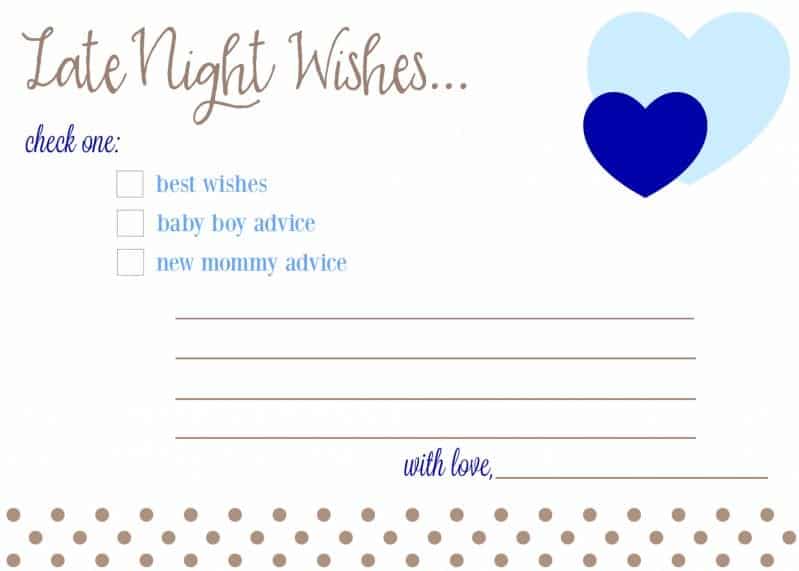 Late Night Wishes...
check one:
best wishes
baby boy advice
new mommy advice
with love,